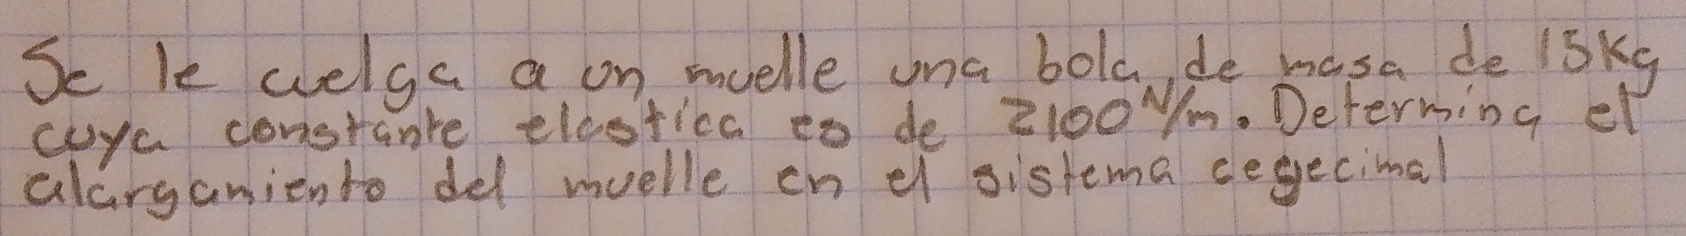 Se le cuelga a un muelle una bola, de masa de 15Kg
cuya constante elastica es de 2100 N/m. Determina el
alargamiento del muelle en el sistema cegecimal